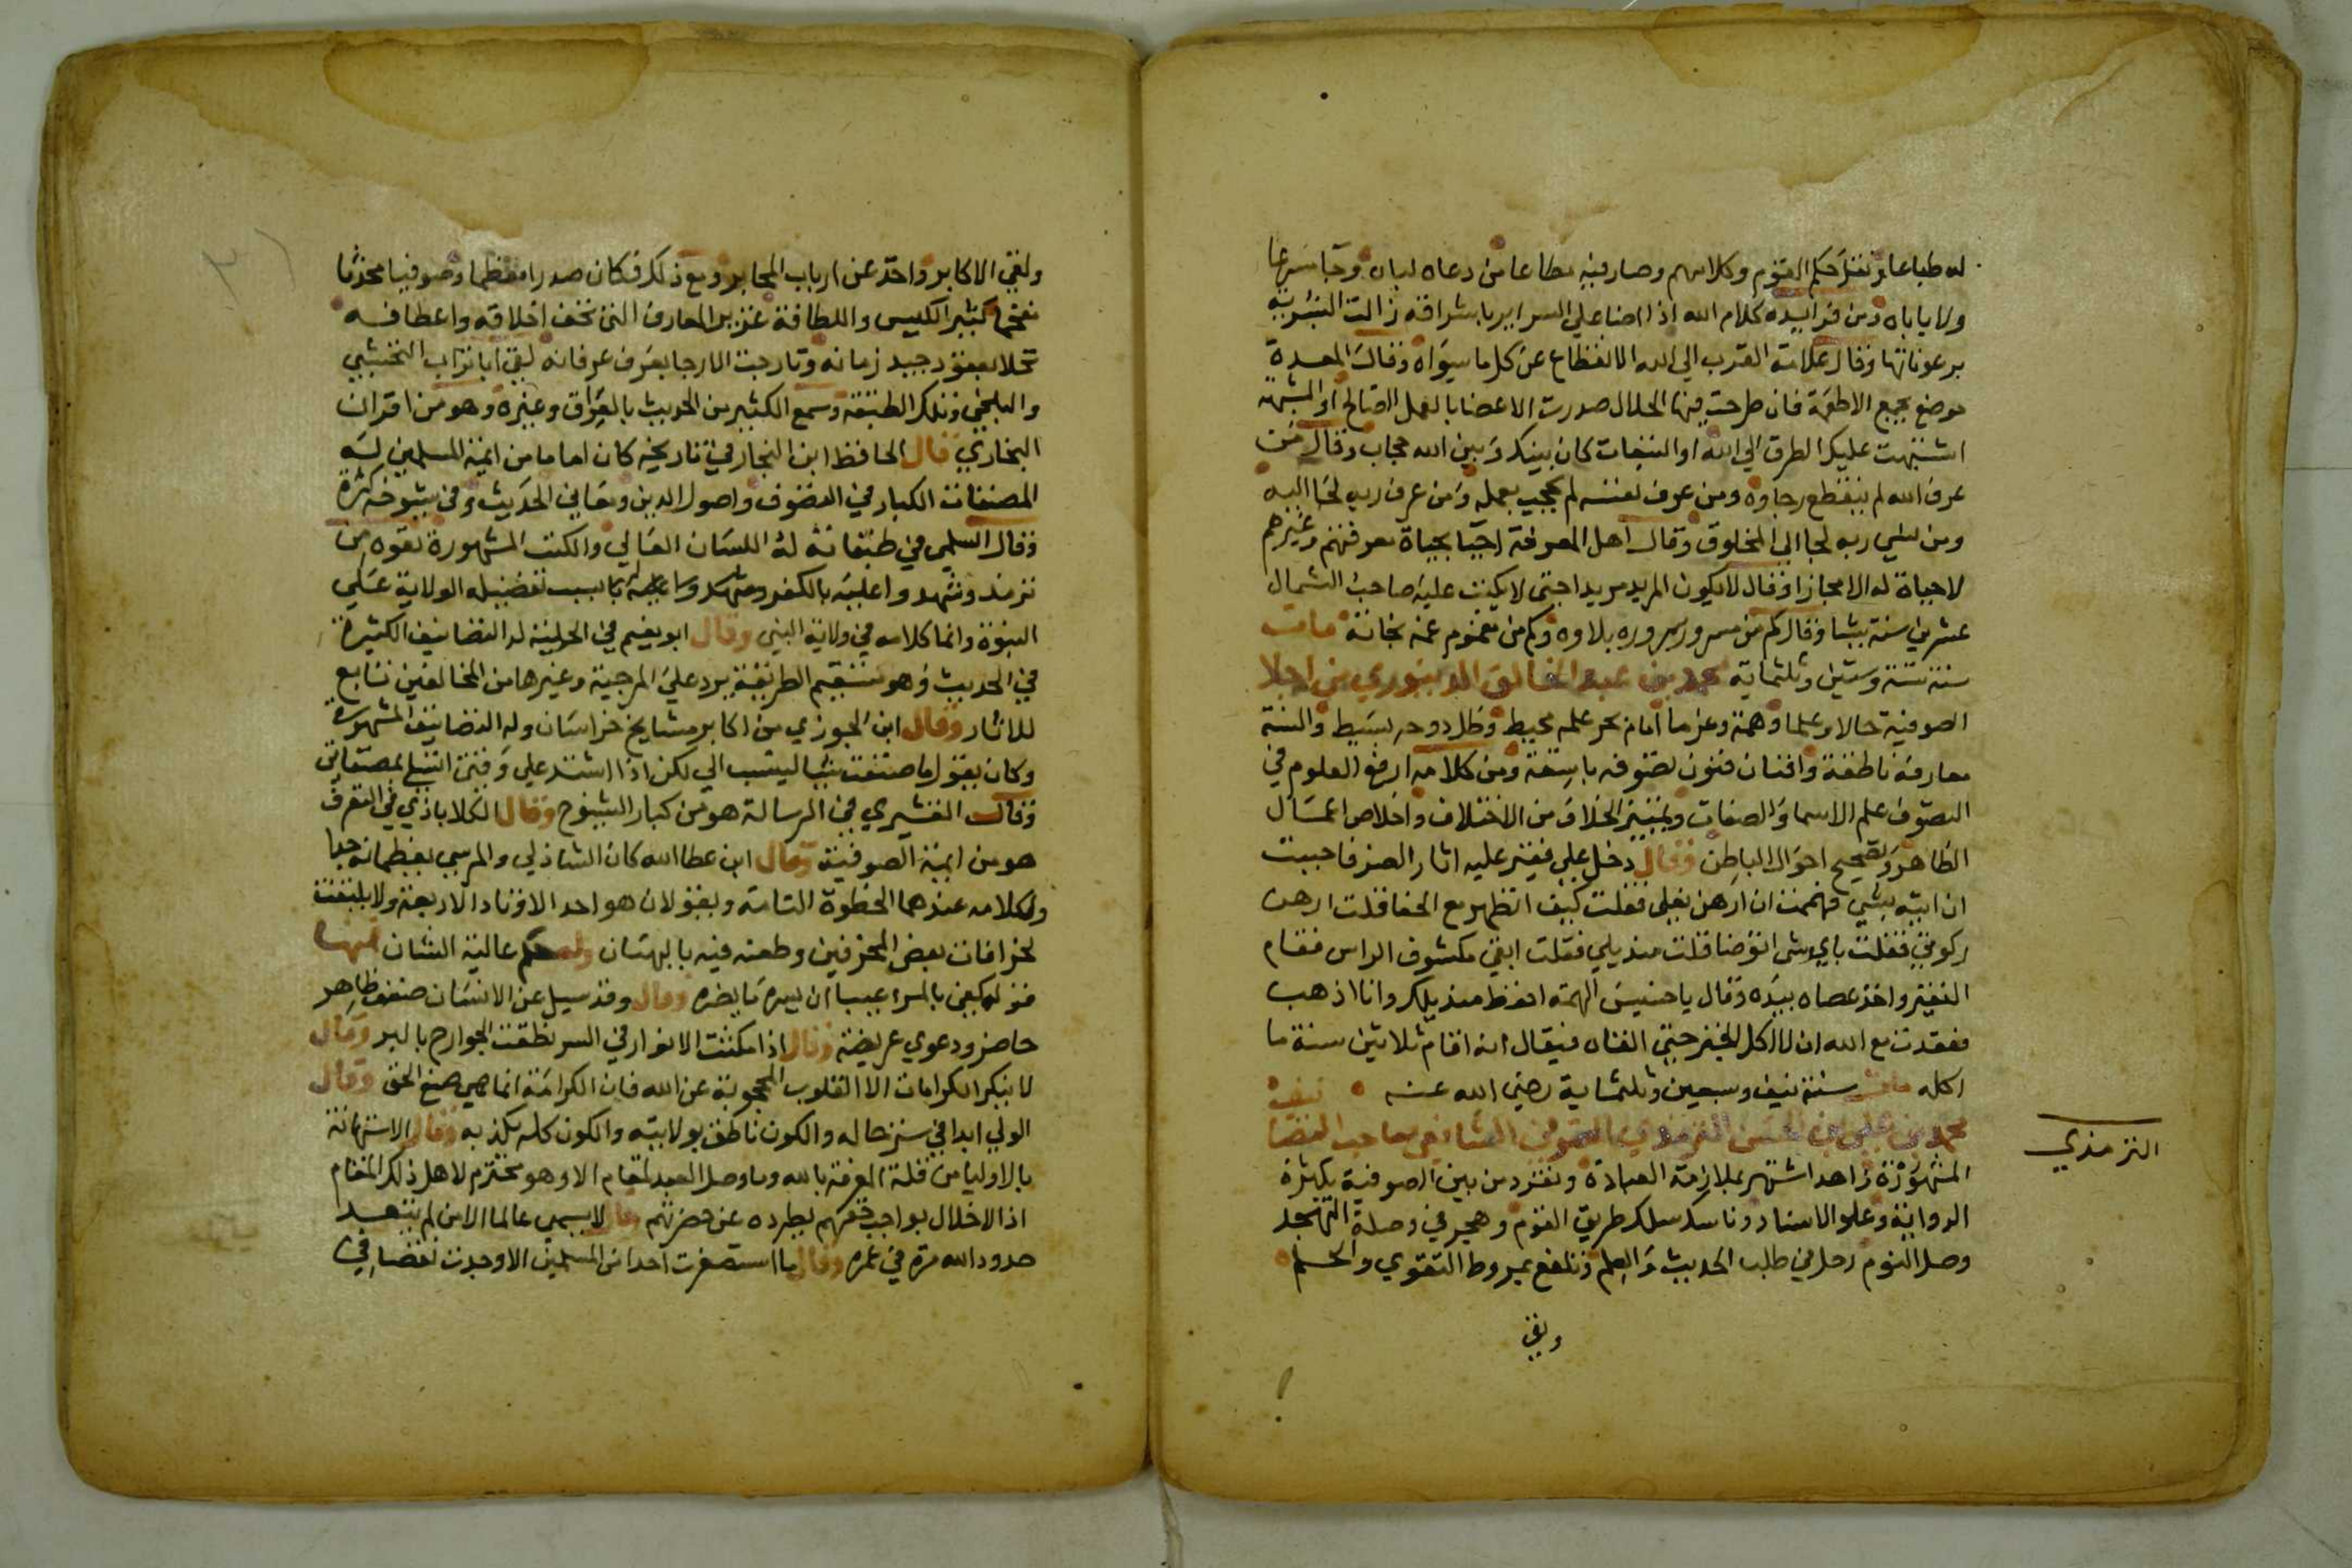 له طباعا ونقل حكم القوم وكلامهم وصار فيه مطاعا من دعاه لباه وحبا سرعا
ولا ياباه ومن فوايده كلام الله اذا اضا على السراير باشراقه زالت البشرية
برعوناتها وقال علامة القرب الى الله الانقطاع عن كل ما سواه وقال المعدة
موضع يجمع الاطعمة فان طرحت فيها الحلال صدرت الاعضا بالعمل الصالح او المشبهة
اشتبهت عليك الطرق الى الله او التبعات كان بينك وبين الله حجاب وقال من
عرف الله لم ينقطع رجاوه ومن عرف نفسه لم يعجب بعمله ومن عرف ربه لجا اليه
ومن نسي ربه لجا الى المخلوق وقال اهل المعرفة احيا بحياة معرفتهم وغيرهم
لا حياة له الا مجازا وقال لا يكون المريد مريدا حتى لا يكتب عليه صاحب الشمال
عشرين سنة شيا وقال كم من مسرور سروره بلاوه وكم من مغموم غمه نجاته مات
سنة ستة وستين وثلثماية محمد بن عبد الخالق الدينوري من اجلا
الصوفية حالا وعلما وهمة وعزما امام بحر علمه محيط وظل دوحه بسيط والسنة
معارفه ناطقة وافنان فنون تصوفه باسقة ومن كلامه ارفع العلوم في
التصوف علم الاسما والصفات وتمييز الخلاف من الاختلاف واخلاص اعمال
الظاهر وتصحيح احوال الباطن وقال دخل علي فقير عليه اثار الضر فاحببت
ان اتيه بشي فهممت ان ارهن نعلي فقلت كيف اتطهر مع الحفا قلت ارهن
ركوتي فقلت باي شي اتوضا قلت منديلي فقلت ابقى مكشوف الراس فقام
الفقير واخذ عصاه بيده وقال يا خسيس الهمة احفظ منديلك وانا اذهب
فعقدت مع الله ان لا اكل الخبز حتى القاه فيقال انه اقام ثلاثين سنة ما
اكله مات سنة نيف وسبعين وثلثماية رضي الله عنه
محمد بن علي بن الحسن الترمذي الصوفي الشافعي صاحب التصا نيف
الترمذي
المشهورة زاهدا اشتهر بملازمة العبادة وتفرد من بين الصوفية بكثرة
الرواية وعلو الاسناد وناسك سلك طريق القوم وهجر في وصلة التهجد
وصل النوم رحل في طلب الحديث والعلم وتلفع بمروط التقوي والحلم
ولقي
ولقي الاكابر واخذ عن ارباب المحابر ومع ذلك فكان صدرا معظما وصوفيا محدثا
مفخما كثير الكيس واللطافة غزير المعارف التي تحف اخلاقه واعطافه
تحلا بعقود جيد زمانه وتارجت الارجا بعرف عرفانه لقي ابا تراب النخشبي
والبلخي وتلك الطبقة وسمع الكثير من الحديث بالعراق وغيره وهو من اقران
البخاري قال الحافظ ابن النجار في تاريخه كان اماما من ايمة المسلمين له
المصنفات الكبار في التصوف واصول الدين ومعاني الحديث وفي شيوخه كثرة
وقال السلمي في طبقاته له اللسان العالي والكتب المشهورة نفوه من
ترمذ وشهدوا عليه بالكفر بسبب تفضيله الولاية على
النبوة وانما كلامه في ولاية النبي وقال ابو نعيم في الحلية له التصانيف الكثيرة
في الحديث وهو مستقيم الطريقة يرد على المرجية وغيرها من المخالفين تابع
للاثار وقال ابن الجوزي من اكابر مشايخ خراسان وله التصانيف المشهورة
وكان يقول ما صنفت شيا لينسب الي لكن اذا اشتد علي وقتي اتسلى بمصنفاتي
وقال القشيري في الرسالة هو من كبار الشيوخ وقال الكلاباذي في التعرف
هو من ايمة الصوفية وقال ابن عطا الله كان الشاذلي والمرسي يعظمانه جدا
ولكلامه عندهما الحظوة التامة ويقولان هو احد الاوتاد الاربعة ولا يلتفت
لخرافات بعض المحرفين وطعنه فيه بالبهتان وله حكم عالية الشان منها
قوله كفى بالمرء عيبا ان يسره ما يضره وقال وقد سيل عن الانسان ضعف ظاهر
حاضر ودعوي عريضة وقال اذا مكنت الانوار في السر نطقت الجوارح بالبر وقال
لا ينكر الكرامات الا القلوب المحجوبة عن الله فان الكرامة انما هي صنع الحق وقال
الولي ابدا في ستر حاله والكون ناطق بولايته والكون كله يكذبه وقال الاستهانة
بالاوليا من قلة المعرفة بالله وما وصل العبد لمقام الا وهو محترم لاهل ذلك المقام
اذ الاخلال بواجب حقهم يطرده عن حضرتهم وقال لا يسمي عالما الا من لم يتعد
حدود الله مرة في عمره وقال ما استصغرت احدا من المسلمين الا وجدت نقصا في